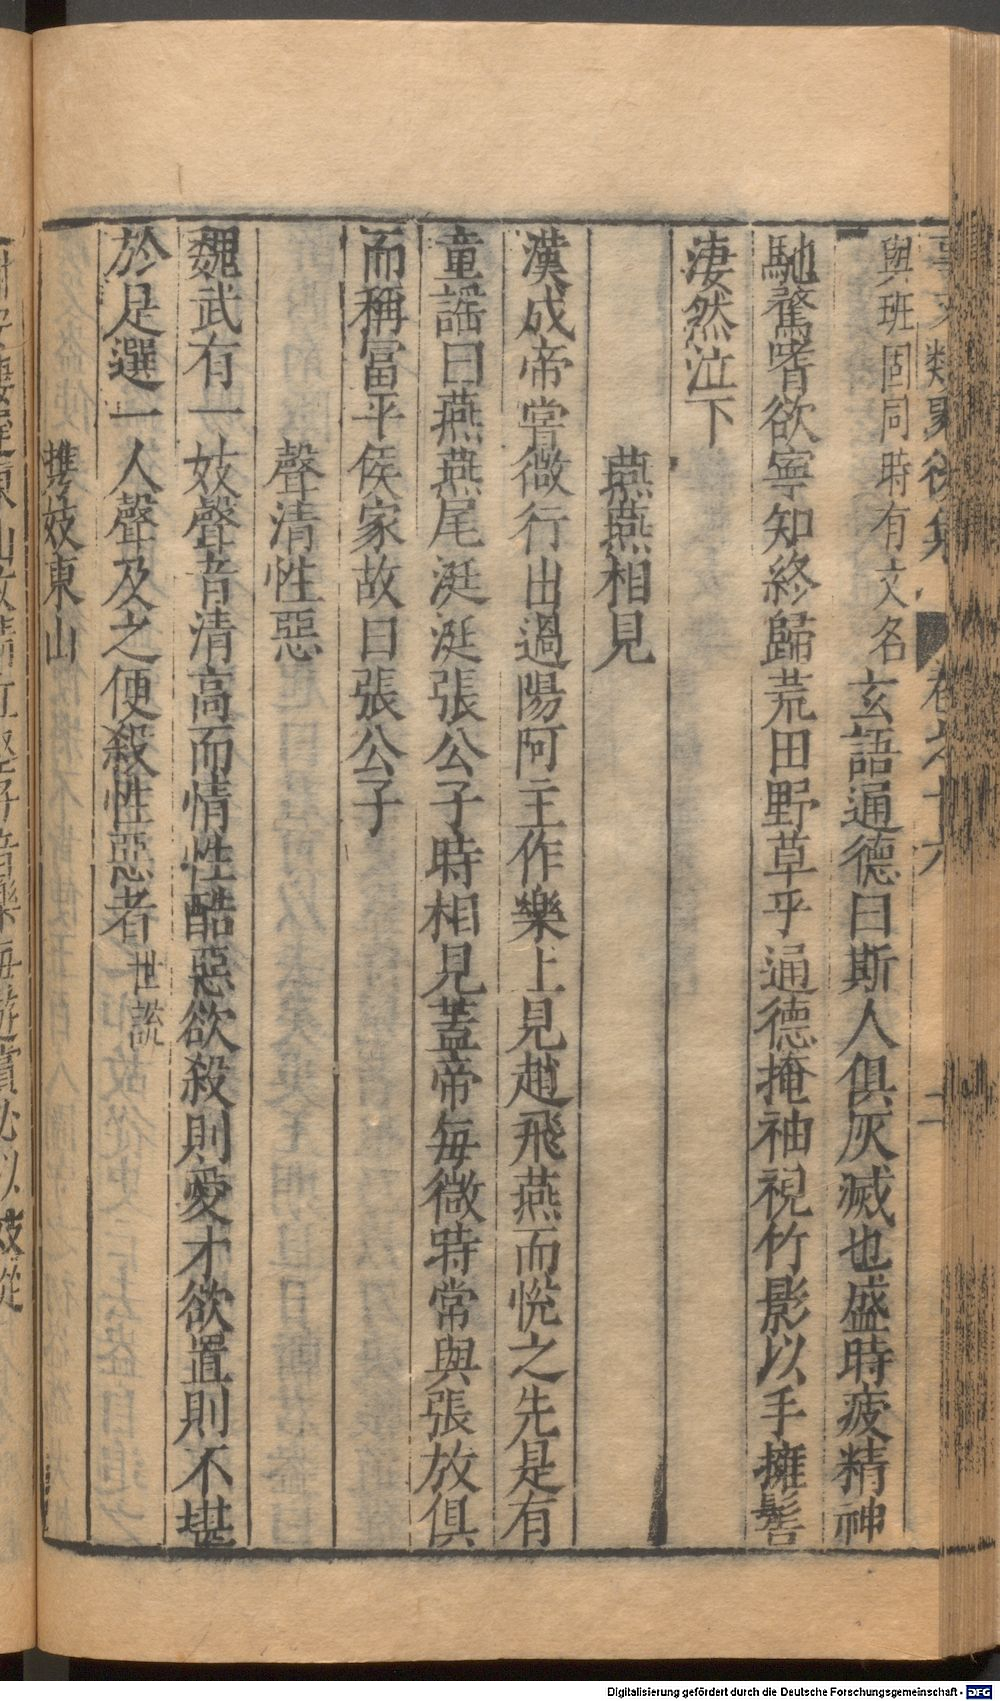 事文類聚後集 卷之十六 二
與班固同時有文名玄語通德曰斯人俱灰滅也盛時疲精神
馳騖嗜欲寧知終歸荒田野草乎通德掩袖視竹影以手擁髻
淒然泣下
燕燕相見
漢成帝嘗微行出過陽阿主作樂上見趙飛燕而悅之先是有
童謡曰燕燕尾涎涎張公子時相見蓋帝每微時常與張放俱
而稱富平侯家故曰張公子
聲清性惡
魏武有一妓聲音清高而情性酷惡欲殺則愛才欲置則不堪
於是選一人聲及之便殺性惡者世說
携妓東山
每遊賞必以妓從
Digitalisierung gefördert durch die Deutsche Forschungsgemeinschaft - DFG